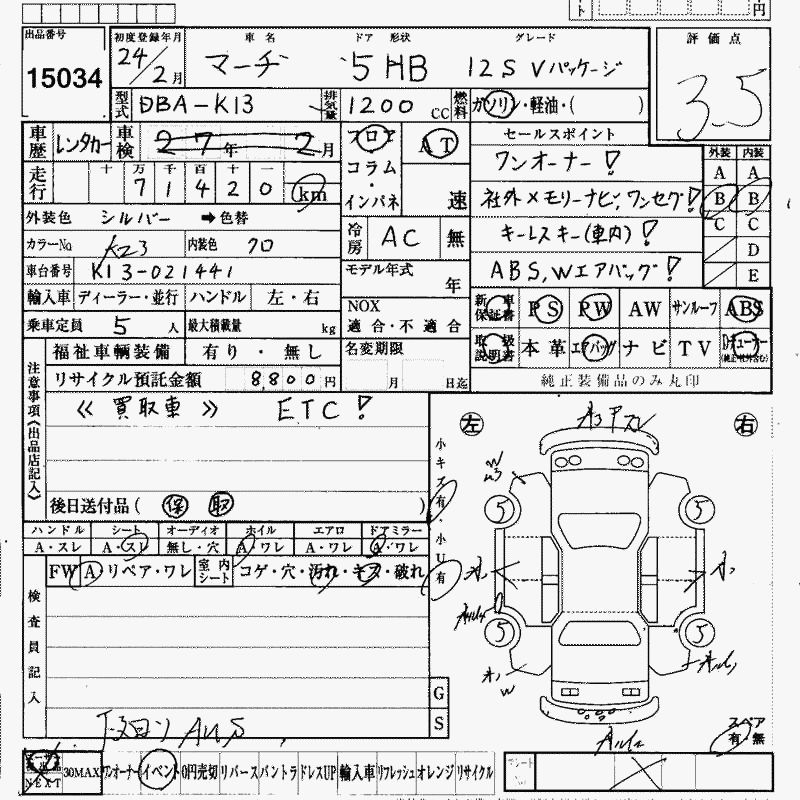 出品番号
15034
初度登録年月
24/2月
車名
マーチ
ドア 形状
5HB
グレード
12S Vパッケージ
評価点
3.5
型式
DBA-K13
排気量
1200 CC
燃料
ガソリン・軽油・( )
車歴
レンタカー
車検
27年 2月
フロア
コラム
・
インパネ
AT
速
セールスポイント
ワンオーナー!
社外メモリーナビ,ワンセグ!
キーレスキー(車内)!
ABS,Wエアバッグ!
外装 内装
A A
B B
C C
D
E
走行
十 万 千 百 十 一
7 1 4 2 0 km
外装色 シルバー ➡色替
カラーNo K23
内装色 クロ
冷房
AC
無
車台番号 K13-021441
モデル年式
年
輸入車 ディーラー・並行 ハンドル 左・右
NOX
適合・不適合
乗車定員 5 人 最大積載量 kg
新車保証書
PS
PW
AW
サンルーフ
ABS
取扱説明書
本革
エアバッグ
ナビ
TV
純正装備品のみ丸印
福祉車輌装備 有り・無し
名変期限
月 日迄
リサイクル預託金額 8,800円
注意事項《出品店記入》
≪ 買取車 ≫ ETC!
後日送付品( 保 取 )
小キズ有・小U有
左
右
ハンドル シート オーディオ ホイル エアロ ドアミラー
A・スレ A・スレ 無し・穴 A/ワレ A・ワレ A・ワレ
FW A リペア・ワレ
室内シート
コゲ・穴・汚れ・キズ・破れ
検査員記入
G
S
5
5
5
5
スペア
有・無
NEXT
30MAX
ワンオーナー
イベント
0円売切
リバース
バントラ
ドレスUP
輸入車
リフレッシュ
オレンジ
リサイクル